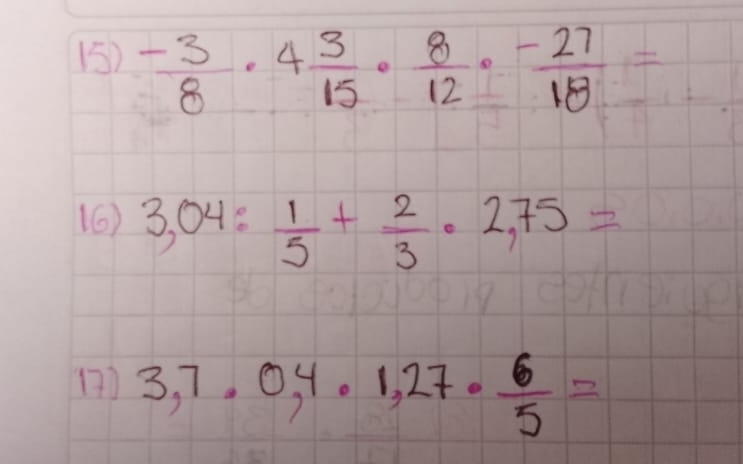 15) -3/8 · 4 3/15 · 8/12 · -27/18 =
16) 3,04 : 1/5 + 2/3 · 2,75 =
17) 3,7 · 0,4 · 1,27 · 6/5 =